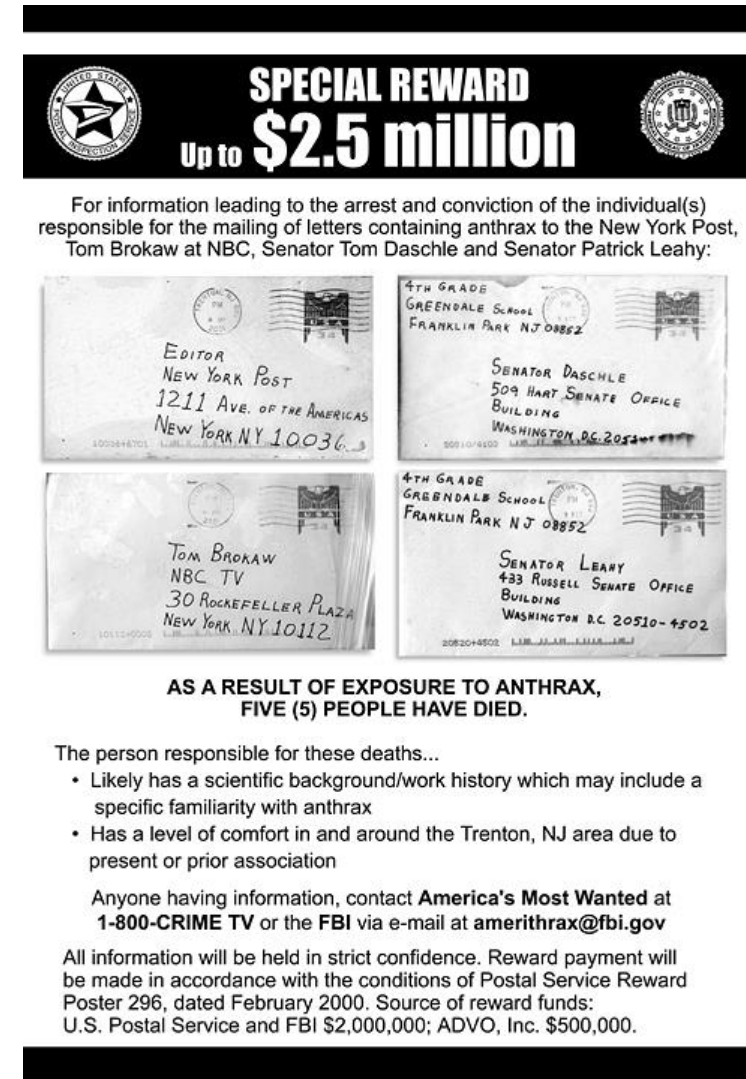 UNITED STATES
POSTAL INSPECTION SERVICE
SPECIAL REWARD
Up to $2.5 million
For information leading to the arrest and conviction of the individual(s)
responsible for the mailing of letters containing anthrax to the New York Post,
Tom Brokaw at NBC, Senator Tom Daschle and Senator Patrick Leahy:
EDITOR
NEW YORK POST
1211 AVE. OF THE AMERICAS
NEW YORK NY 10036
USA
34
4TH GRADE
GREENDALE SCHOOL
FRANKLIN PARK NJ 08852
SENATOR DASCHLE
509 HART SENATE OFFICE
BUILDING
WASHINGTON D.C. 2051
USA
34
TOM BROKAW
NBC TV
30 ROCKEFELLER PLAZA
NEW YORK NY 10112
USA
34
4TH GRADE
GREENDALE SCHOOL
FRANKLIN PARK NJ 08852
SENATOR LEAHY
433 RUSSELL SENATE OFFICE
BUILDING
WASHINGTON D.C. 20510-4502
20520+4502
USA
34
AS A RESULT OF EXPOSURE TO ANTHRAX,
FIVE (5) PEOPLE HAVE DIED.
The person responsible for these deaths...
• Likely has a scientific background/work history which may include a
specific familiarity with anthrax
• Has a level of comfort in and around the Trenton, NJ area due to
present or prior association
Anyone having information, contact America's Most Wanted at
1-800-CRIME TV or the FBI via e-mail at amerithrax@fbi.gov
All information will be held in strict confidence. Reward payment will
be made in accordance with the conditions of Postal Service Reward
Poster 296, dated February 2000. Source of reward funds:
U.S. Postal Service and FBI $2,000,000; ADVO, Inc. $500,000.